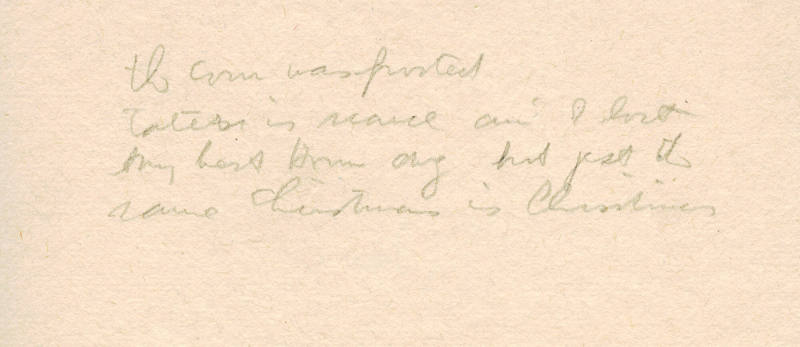 the corn was frosted
Taters is scarce an' I lost
my best houn dog but just the
same Christmas is Christmas